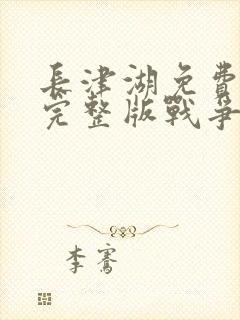 長津湖免費
完整版戰爭
李騫